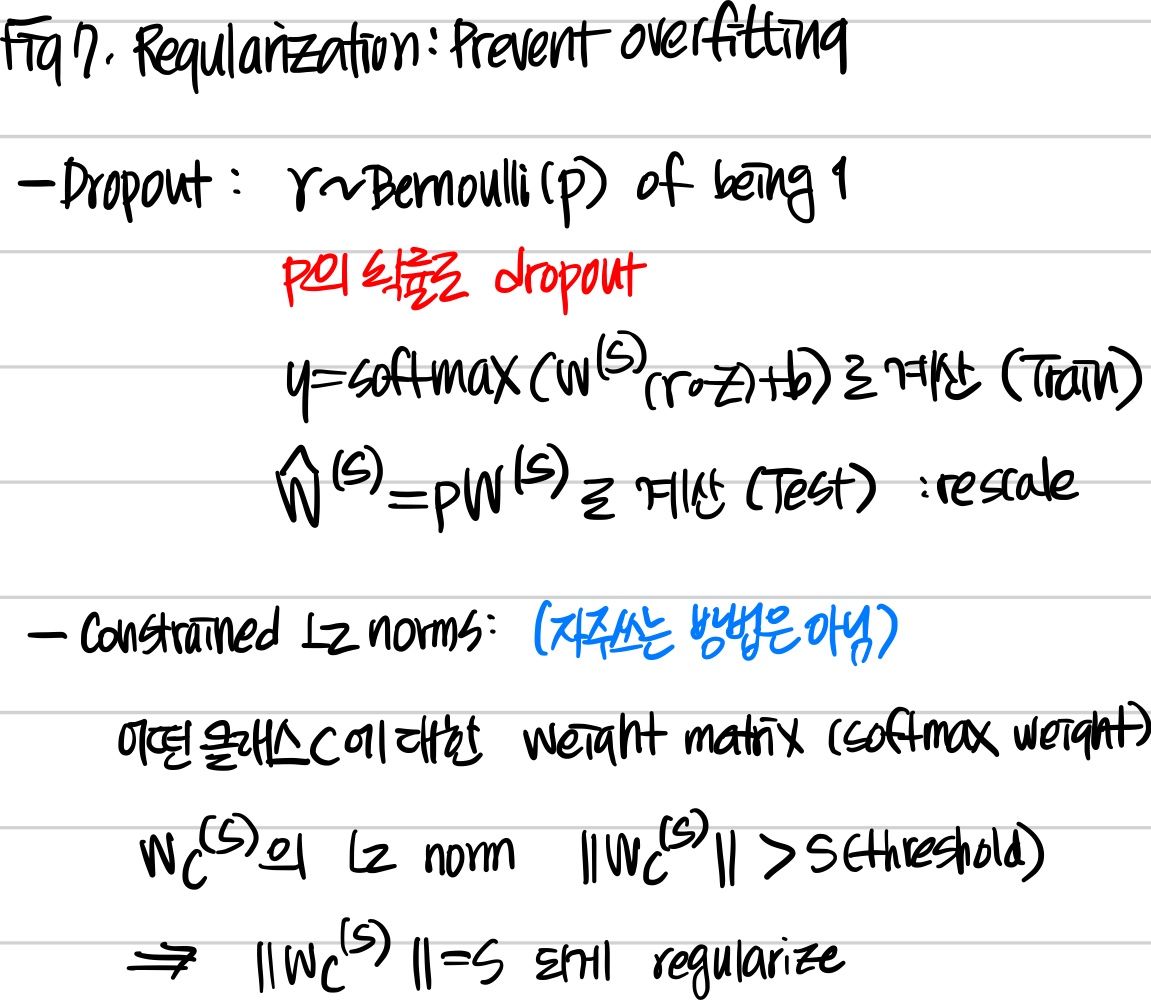 Fig 7. Regularization: Prevent overfitting
- Dropout: r~Bernoulli(p) of being 1
P의 확률로 dropout
y=softmax(W^(S)(r∘z)+b)로 계산 (Train)
Ŵ^(S)=pW^(S)로 계산 (Test) : rescale
- Constrained L2 norms: (자주쓰는 방법은 아님)
어떤 클래스 C에 대한 weight matrix (softmax weight)
Wc^(S)의 L2 norm ||Wc^(S)|| > S(threshold)
⇒ ||Wc^(S)||=S 되게 regularize